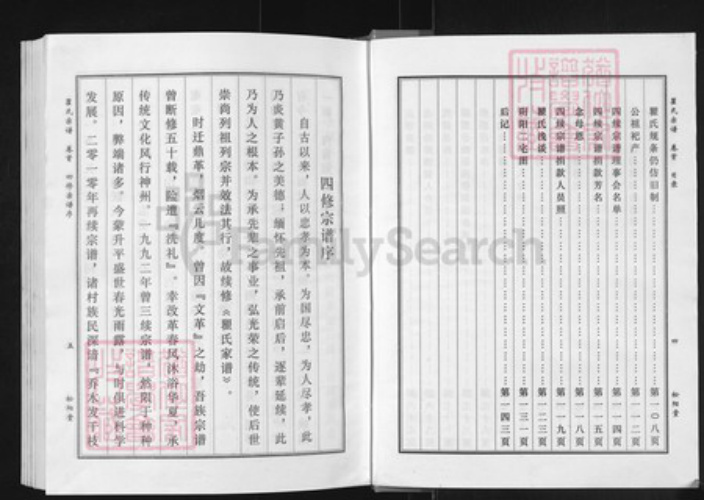 瞿氏宗谱 卷首 目录
四
松阳堂
瞿氏规条仍仿旧制……第一〇八页
公祖祀产……第一一二页
四续宗谱理事会名单……第一一四页
四续宗谱捐款芳名……第一一五页
念母恩……第一一八页
四续宗谱捐款人员照……第一一九页
瞿氏浅谈……第一二三页
阴阳二宅图……第一三一页
后记……第一四三页
四修宗谱序
自古以来，人以忠孝为本。为国尽忠，为人尽孝，此
乃炎黄子孙之美德；缅怀先祖，承前启后，逐辈延续，此
乃为人之根本。为承先辈之事业，弘光荣之传统，使后世
崇尚列祖列宗并效法其行，故续修《瞿氏家谱》。
时迁鼎革，烟云几度。曾因『文革』之劫，吾族宗谱
曾断修五十载，险遭『洗礼』。幸改革春风沐浴华夏，承
传统文化风行神州。一九九二年曾三续宗谱，然限于种种
原因，弊端诸多。今蒙升平盛世春光雨露，与时俱进科学
发展。二零一零年再续宗谱，诸村族民深谙『乔木发千枝
瞿氏宗谱 卷首 四修宗谱序
五
松阳堂
FamilySearch